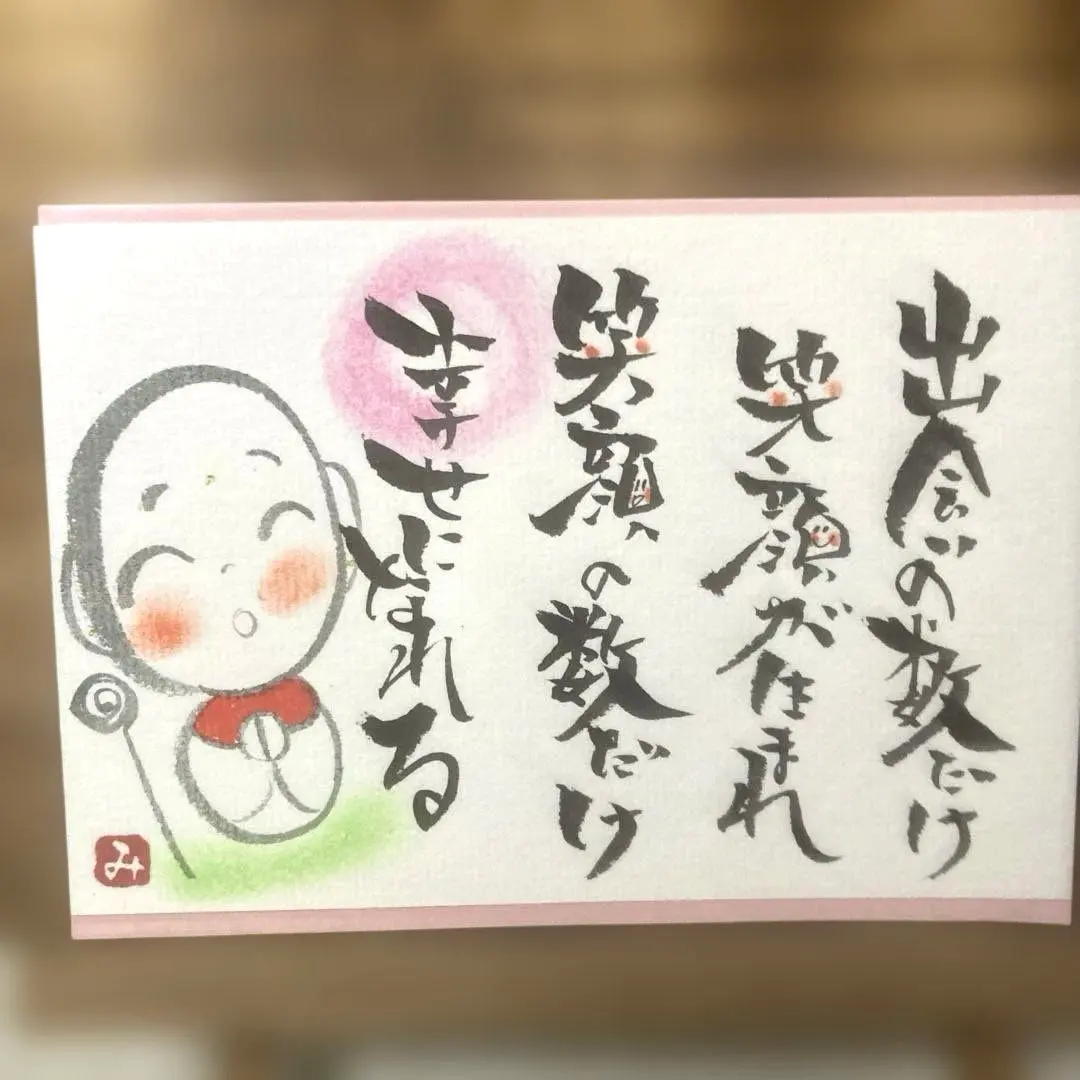 出会いの数だけ
笑顔が生まれ
笑顔の数だけ
幸せになれる
み